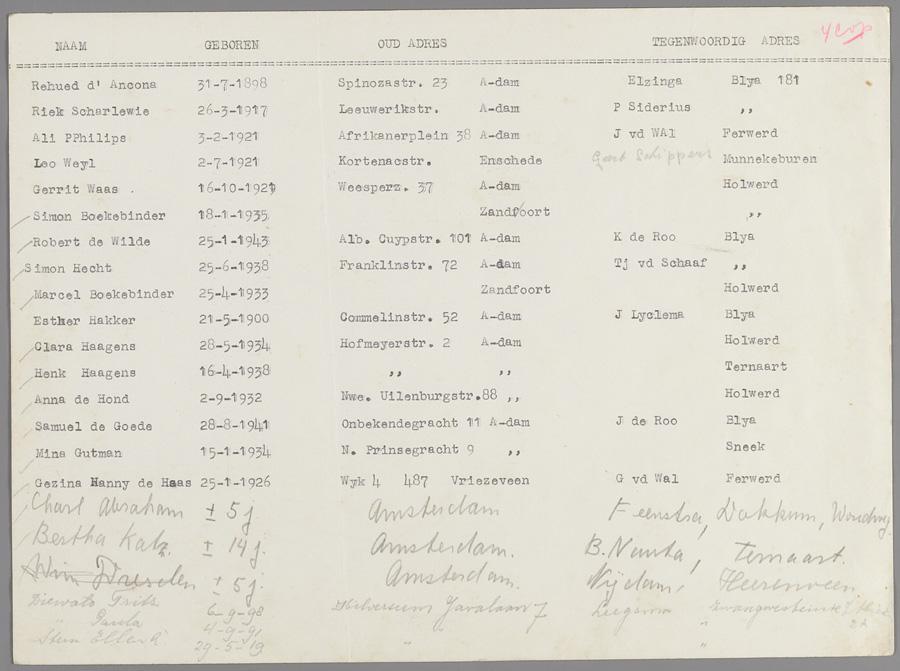 NAAM GEBOREN OUD ADRES TEGENWOORDIG ADRES 4 cop
Rehued d' Ancona 31-7-1898 Spinozastr. 23 A-dam Elzinga Blya 181
Riek Scharlewie 26-3-1917 Leeuwerikstr. A-dam P Siderius ,,
Ali PPhilips 3-2-1921 Afrikanerplein 38 A-dam J vd WAl Ferwerd
Leo Weyl 2-7-1921 Kortenacstr. Enschede Gert Schippers Munnekeburen
Gerrit Waas . 16-10-1921 Weesperz. 37 A-dam Holwerd
Simon Boekebinder 18-1-1935 Zandfoort ,,
Robert de Wilde 25-1-1943 Alb. Cuypstr. 101 A-dam K de Roo Blya
Simon Hecht 25-6-1938 Franklinstr. 72 A-dam Tj vd Schaaf ,,
Marcel Boekebinder 25-4-1933 Zandfoort Holwerd
Esther Hakker 21-5-1900 Commelinstr. 52 A-dam J Lyclema Blya
Clara Haagens 28-5-1934 Hofmeyerstr. 2 A-dam Holwerd
Henk Haagens 16-4-1938 ,, ,, Ternaart
Anna de Hond 2-9-1932 Nwe. Uilenburgstr.88 ,, Holwerd
Samuel de Goede 28-8-1941 Onbekendegracht 11 A-dam J de Roo Blya
Mina Gutman 15-1-1934 N. Prinsegracht 9 ,, Sneek
Gezina Hanny de Haas 25-1-1926 Wyk 4 487 Vriezeveen G vd Wal Ferwerd
Charl Abraham ± 5 j Amsterdam Feenstra, Dokkum,
Bertha Katz. ± 14 j. Amsterdam. B. Nauta, Ternaart.
Wim Dreselen ± 5 j. Amsterdam. Nijdam, Heerenveen
Fritz 6-9-98 Hilversum Javalaan 7
" 4-9-91 " "
Stern Ella 29-5-19 " "